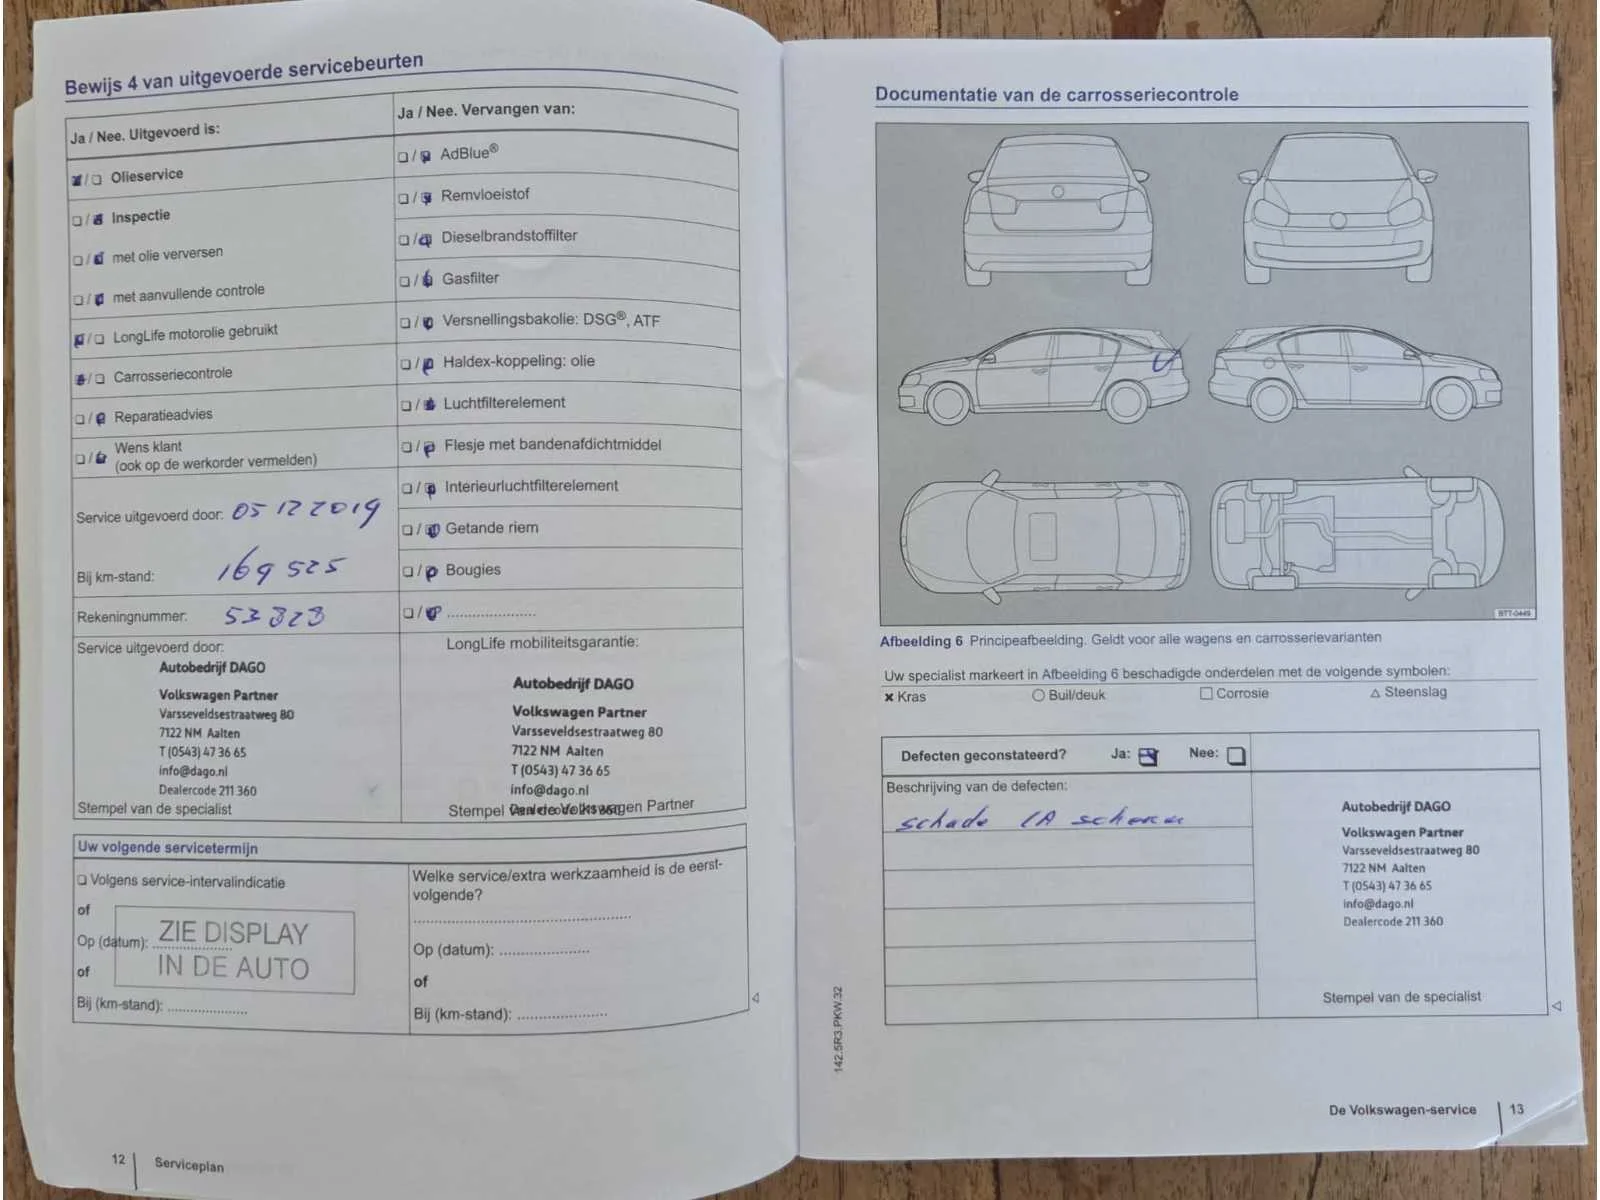 Bewijs 4 van uitgevoerde servicebeurten
Ja / Nee. Uitgevoerd is:
Olieservice
Inspectie
met olie verversen
met aanvullende controle
LongLife motorolie gebruikt
Carrosseriecontrole
Reparatieadvies
Wens klant
(ook op de werkorder vermelden)
Service uitgevoerd door: 05 12 2019
Bij km-stand: 169 525
Rekeningnummer: 53323
Ja / Nee. Vervangen van:
AdBlue®
Remvloeistof
Dieselbrandstoffilter
Gasfilter
Versnellingsbakolie: DSG®, ATF
Haldex-koppeling: olie
Luchtfilterelement
Flesje met bandenafdichtmiddel
Interieurluchtfilterelement
Getande riem
Bougies
Service uitgevoerd door:
Autobedrijf DAGO
Volkswagen Partner
Varsseveldsestraatweg 80
7122 NM Aalten
T (0543) 47 36 65
info@dago.nl
Dealercode 211 360
Stempel van de specialist
LongLife mobiliteitsgarantie:
Autobedrijf DAGO
Volkswagen Partner
Varsseveldsestraatweg 80
7122 NM Aalten
T (0543) 47 36 65
info@dago.nl
Stempel van de Volkswagen Partner
Uw volgende servicetermijn
Volgens service-intervalindicatie
of
Op (datum):
ZIE DISPLAY
IN DE AUTO
of
Bij (km-stand):
Welke service/extra werkzaamheid is de eerst-
volgende?
Op (datum):
of
Bij (km-stand):
12 Serviceplan
Documentatie van de carrosseriecontrole
BTT-0449
Afbeelding 6 Principeafbeelding. Geldt voor alle wagens en carrosserievarianten
Uw specialist markeert in Afbeelding 6 beschadigde onderdelen met de volgende symbolen:
Kras Buil/deuk Corrosie Steenslag
Defecten geconstateerd? Ja: Nee:
Beschrijving van de defecten:
schade LA scherm
Autobedrijf DAGO
Volkswagen Partner
Varsseveldsestraatweg 80
7122 NM Aalten
T (0543) 47 36 65
info@dago.nl
Dealercode 211 360
Stempel van de specialist
142.5R3.PKW.32
De Volkswagen-service 13